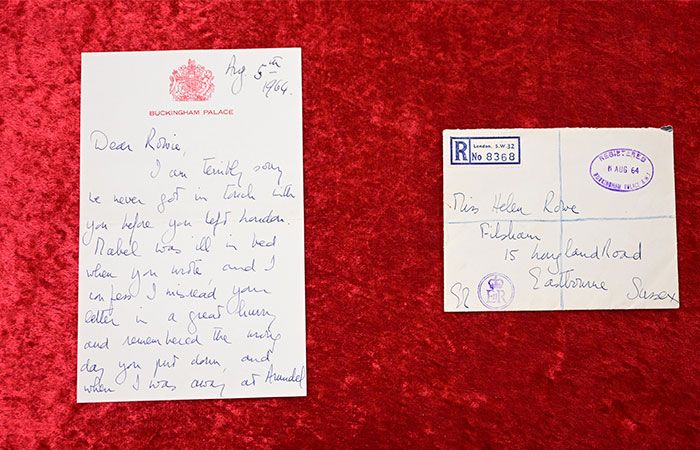 Aug. 5th
1964.
BUCKINGHAM PALACE
Dear Rowie,
I am terribly sorry
we never got in touch with
you before you left London.
Mabel was ill in bed
when you wrote, and I
confess I misread your
letter in a great hurry
and remembered the wrong
day you put down, and
when I was away at Arundel
R London, S.W.32
No 8368
REGISTERED
AUG 64
BUCKINGHAM PALACE S.W.1
Miss Helen Rowe
Filsham
15 Road
Eastbourne
Sussex
ER
EIIR